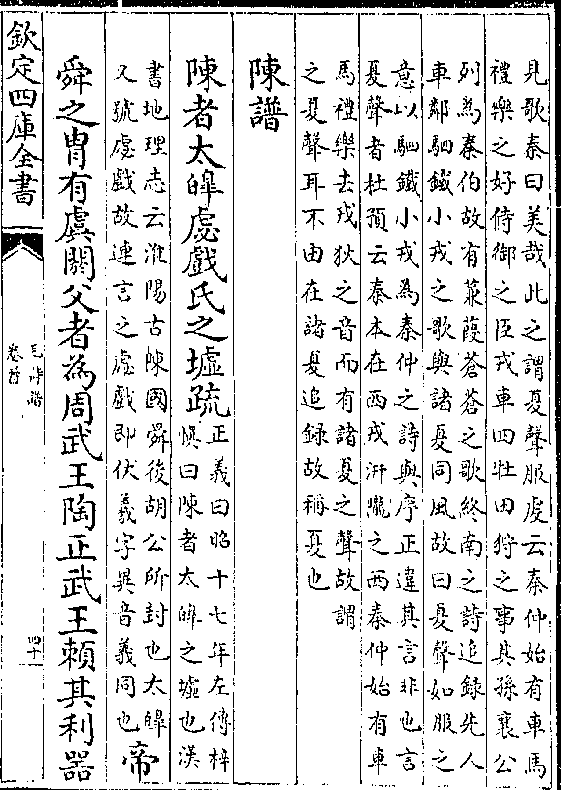 見歌秦曰美哉此之謂夏聲服虔云秦仲始有車馬
禮樂之好侍御之臣戎車四牡田狩之事其孫襄公
列為秦伯故有蒹葭蒼蒼之歌終南之詩追錄先人
車鄰駟鐵小戎之歌與諸夏同風故曰夏聲如服之
意以駟鐵小戎為秦仲之詩與序正違其言非也言
夏聲者杜預云秦本在西戎汧隴之西秦仲始有車
馬禮樂去戎狄之音而有諸夏之聲故謂
之夏聲耳不由在諸夏追録故稱夏也
陳譜
陳者太皥虙戲氏之墟疏
正義曰昭十七年左傳梓
慎曰陳者太皥之墟也漢
書地理志云淮陽古陳國舜後胡公所封也太皥
又號虙戲故連言之虙戲即伏羲字異音義同也
帝
舜之胄有虞閼父者為周武王陶正武王賴其利器
欽定四庫全書
毛詩譜
卷首
四十